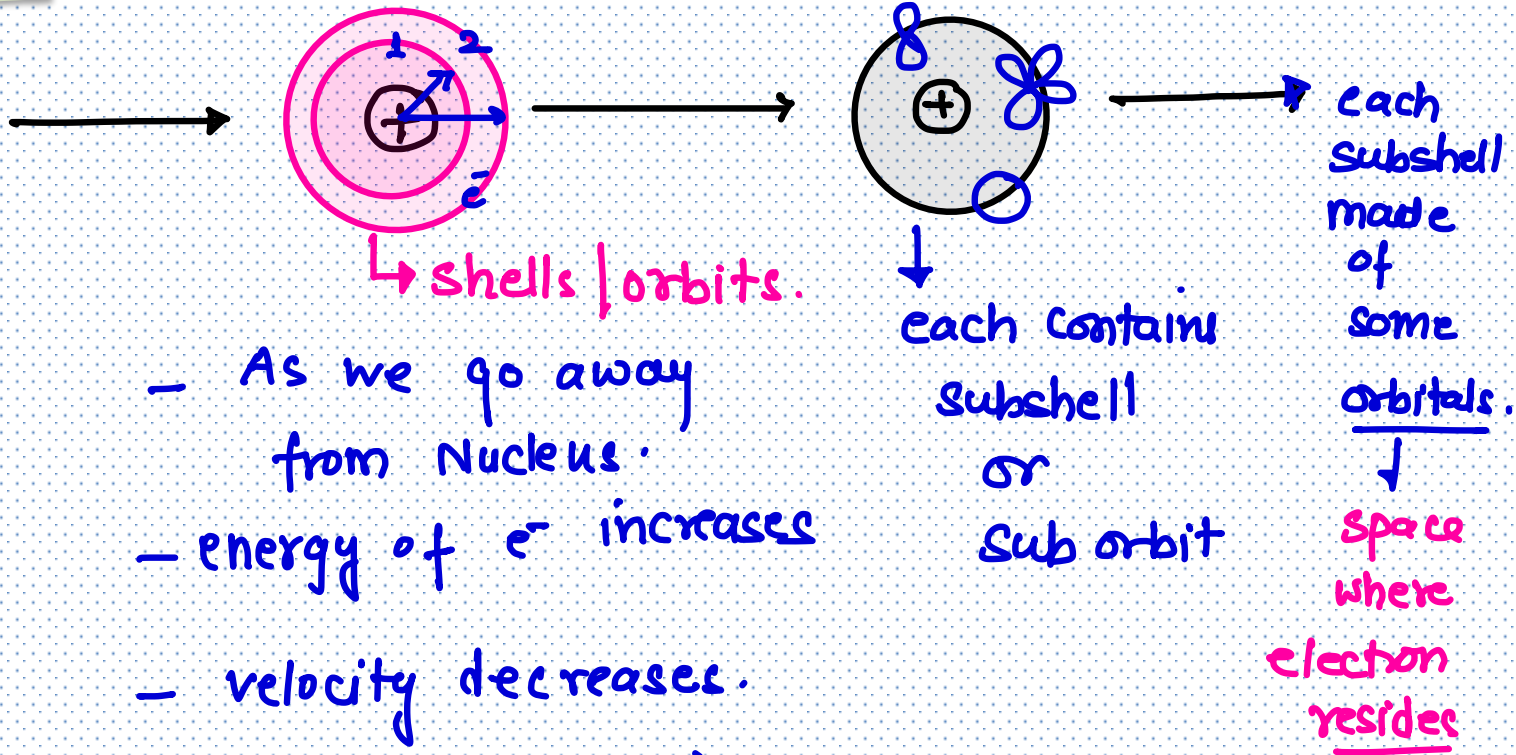 1 2
+
e-
↳ Shells | orbits.
- As we go away
from Nucleus.
- energy of e- increases
- velocity decreases.
+
each contains
subshell
or
sub orbit
each
subshell
made
of
some
orbitals.
space
where
electron
resides